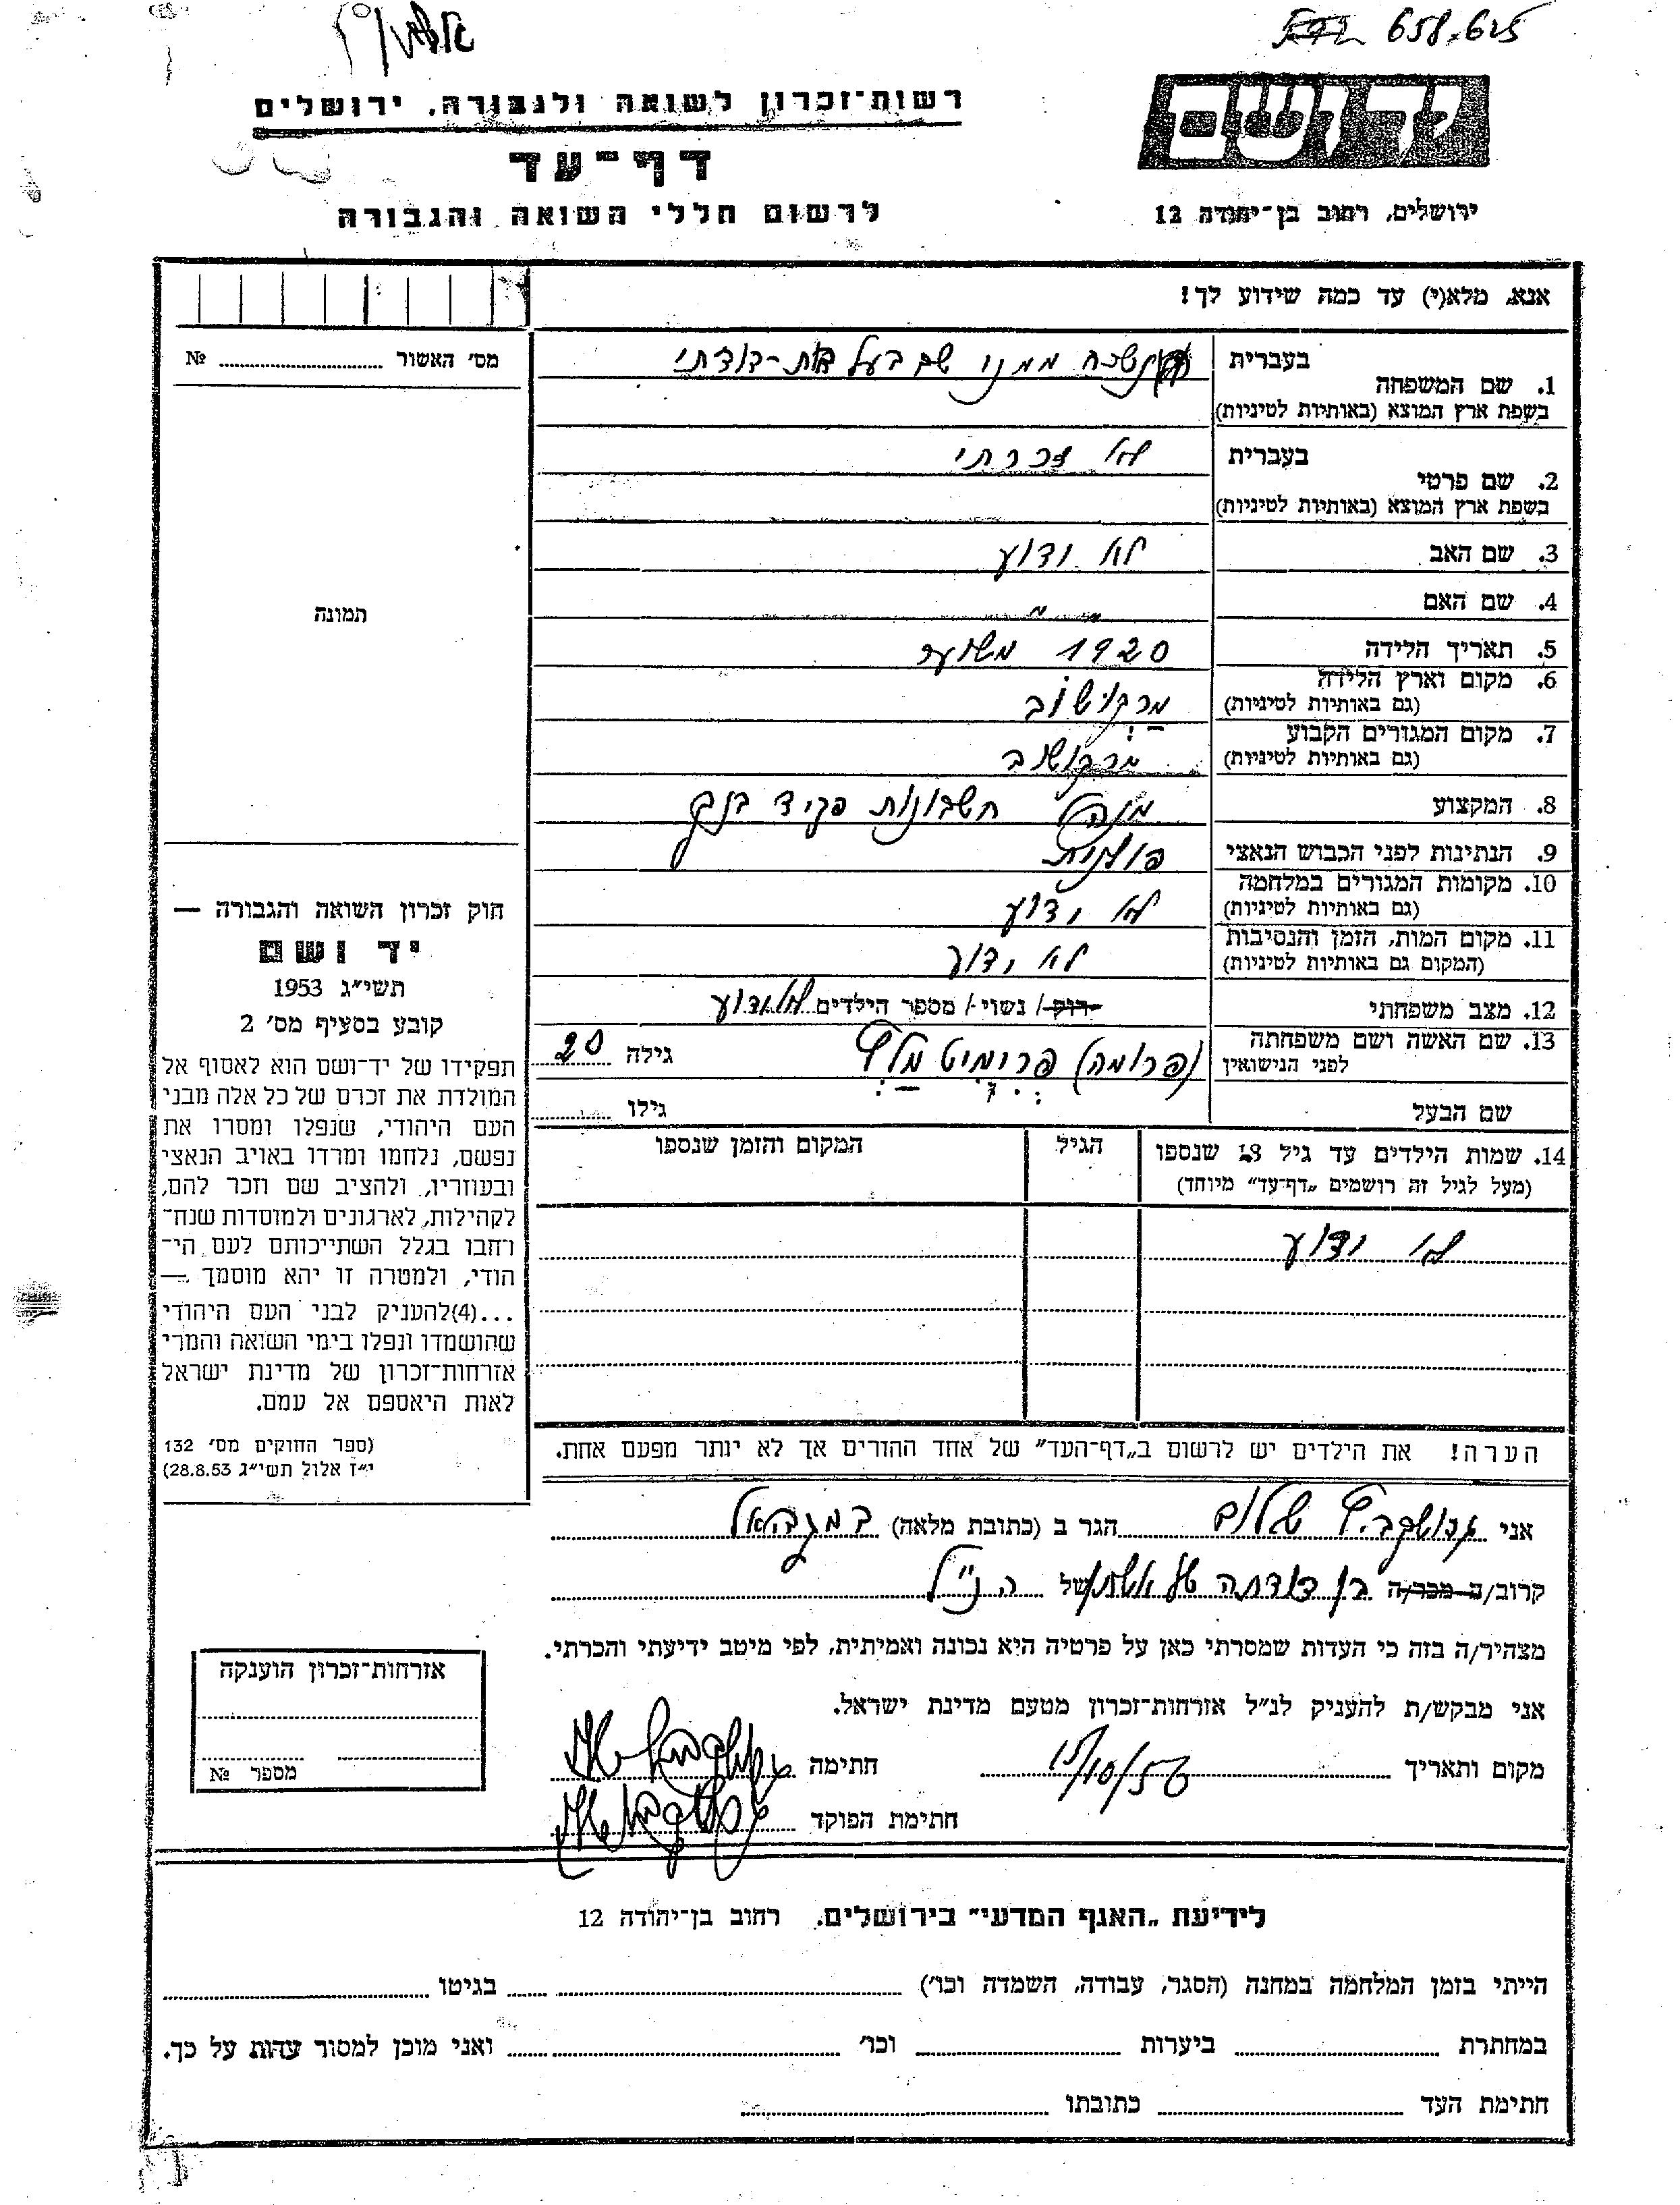 658,625
ידושם
רשות־זכרון לשואה ולגבורה, ירושלים
דף־עד
לרשום חללי השואה והגבורה
ירושלים, רחוב בן־יהודה 12
אנא, מלא(י) עד כמה שידוע לך!
מס׳ האשור № 
תמונה
חוק זכרון השואה והגבורה —
יד ושם
תשי״ג 1953
קובע בסעיף מס׳ 2
תפקידו של יד־ושם הוא לאסוף אל
המולדת את זכרם של כל אלה מבני
העם היהודי, שנפלו ומסרו את
נפשם, נלחמו ומרדו באויב הנאצי
ובעוזריו, ולהציב שם וזכר להם,
לקהילות, לארגונים ולמוסדות שנח־
רחבו בגלל השתייכותם לעם הי־
הודי, ולמטרה זו יהא מוסמך —
...(4)להעניק לבני העם היהודי
שהושמדו ונפלו בימי השואה והמרי
אזרחות־זכרון של מדינת ישראל
לאות היאספם אל עמם.
(ספר החוקים מס׳ 132
י״ז אלול תשי״ג 28.8.53)
בעברית נשכח ממנו שם בעל בת-דודתי
1. שם המשפחה
בשפת ארץ המוצא (באותיות לטיניות)
בעברית לא זכרתי
2. שם פרטי
בשפת ארץ המוצא (באותיות לטיניות)
3. שם האב לא ידוע
4. שם האם " "
5. תאריך הלידה 1920 משוער
6. מקום וארץ הלידה
(גם באותיות לטיניות) מרקושוב
7. מקום המגורים הקבוע
(גם באותיות לטיניות) מרקושוב
8. המקצוע מנהל חשבונות פקיד בנק
9. הנתינות לפני הכבוש הנאצי פולנית
10. מקומות המגורים במלחמה
(גם באותיות לטיניות) לא ידוע
11. מקום המות, הזמן והנסיבות
(המקום גם באותיות לטיניות) לא ידוע
12. מצב משפחתי רוק / נשוי / מספר הילדים לא ידוע
13. שם האשה ושם משפחתה
לפני הנישואין (פרומה) פרימיט מלץ גילה 20
שם הבעל גילו
14. שמות הילדים עד גיל 18 שנספו הגיל המקום והזמן שנספו
(מעל לגיל זה רושמים „דף־עד״ מיוחד)
לא ידוע
הערה! את הילדים יש לרשום ב„דף־העד״ של אחד ההורים אך לא יותר מפעם אחת.
אני שלום הגר ב (כתובת מלאה)
קרוב/ה מכר/ה בן דודתה של אשתו של הנ״ל
מצהיר/ה בזה כי העדות שמסרתי כאן על פרטיה היא נכונה ואמיתית, לפי מיטב ידיעתי והכרתי.
אני מבקש/ת להעניק לנ״ל אזרחות־זכרון מטעם מדינת ישראל.
מקום ותאריך 15/10/56 חתימה
חתימת הפוקד
אזרחות־זכרון הוענקה
מספר №
לידיעת „האגף המדעי״ בירושלים. רחוב בן־יהודה 12
הייתי בזמן המלחמה במחנה (הסגר, עבודה, השמדה וכו׳) בגיטו
במחתרת ביערות וכו׳ ואני מוכן למסור עדות על כך.
חתימת העד כתובתו